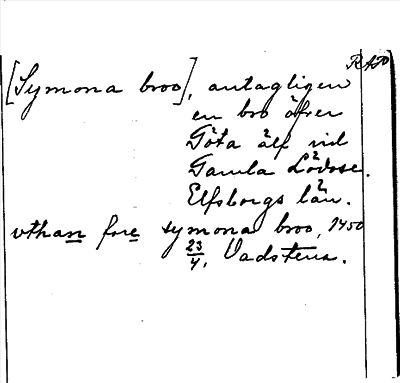 RAP
[Symona broo], antagligen
en bro öfver
Göta älf vid
Gamla Lödöse.
Elfsborgs län.
vthan fore symona broo, 1450
23/4, Vadstena.